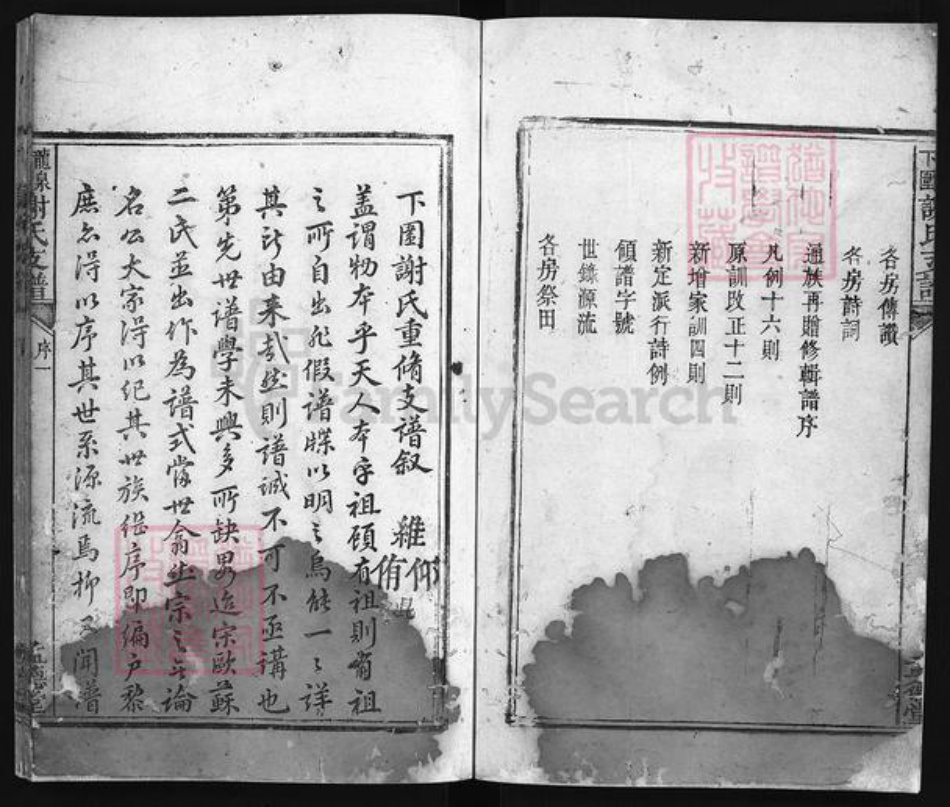 各房傳讚
各房詩詞
通族再贈修輯譜序
凡例十六則
原訓改正十二則
新增家訓四則
新定派行詩例
領譜字號
世錄源流
各房祭田
下園謝氏支譜
下園謝氏重脩支譜叙 維仰侑
蓋謂物本乎天人本乎祖顧有祖則有祖
之所自出非假譜牒以明之烏能一々詳
其所由来哉然則譜誠不可不亟講也
第先世譜學未興多所缺畧迨宗歐蘇
二氏並出作為譜式當世翕然宗之無論
名公大家得以紀其世族傳序即編户黎
庶亦得以序其世系源流焉抑又聞譜
謝氏支譜
序一
FamilySearch